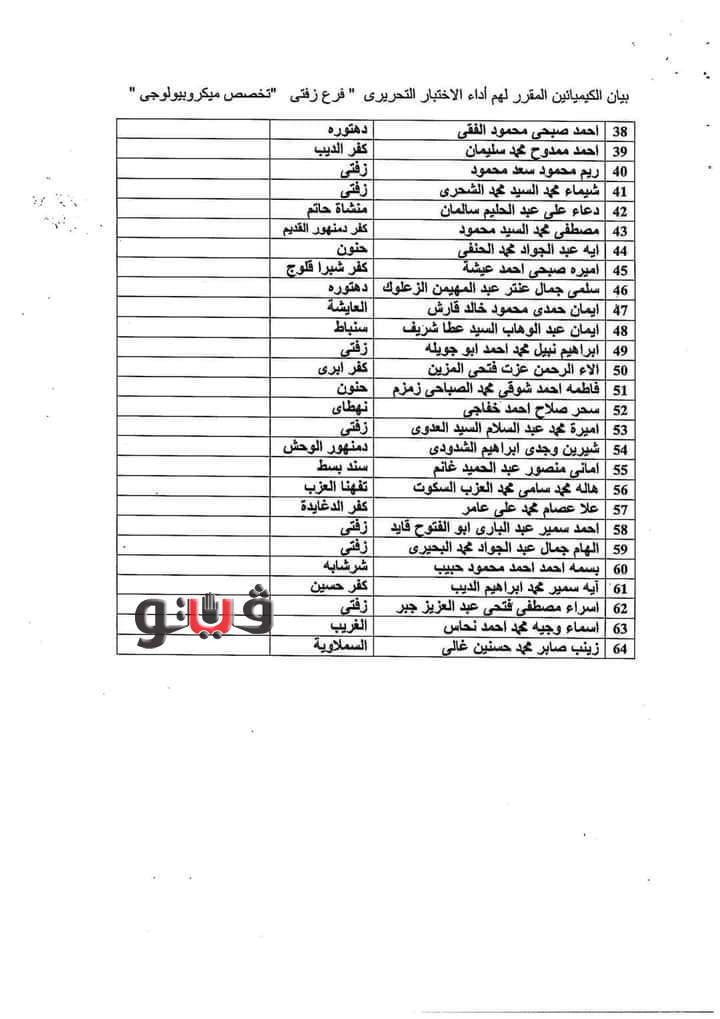 بيان الكيميائين المقرر لهم أداء الاختبار التحريرى " فرع زفتى "تخصص ميكروبيولوجى "
38 احمد صبحى محمود الفقى دهتوره
39 احمد ممدوح محمد سليمان كفر الديب
40 ريم محمود سعد محمود زفتي
41 شيماء محمد السيد محمد الشحرى زفتي
42 دعاء على عبد الحليم سالمان منشاة حاتم
43 مصطفى محمد السيد محمود كفر دمنهور القديم
44 ايه عبد الجواد محمد الحنفى حنون
45 اميره صبحى احمد عيشة كفر شبرا قلوج
46 سلمى جمال عنتر عبد المهيمن الزعلوك دهتوره
47 ايمان حمدى محمود خالد قارش العايشة
48 ايمان عبد الوهاب السيد عطا شريف سنباط
49 ابراهيم نبيل محمد احمد ابو جويله زفتي
50 الاء الرحمن عزت فتحى المزين كفر ابرى
51 فاطمه احمد شوقي محمد الصباحى زمزم حنون
52 سحر صلاح احمد خفاجى نهطاى
53 اميرة محمد عبد السلام السيد العدوى زفتي
54 شيرين وجدى ابراهيم الشدودى دمنهور الوحش
55 امانى منصور عبد الحميد غانم سند بسط
56 هاله محمد سامى محمد العزب السكوت تفهنا العزب
57 علا عصام محمد على عامر كفر الدغايدة
58 احمد سمير عبد البارى ابو الفتوح قايد زفتي
59 الهام جمال عبد الجواد محمد البحيرى زفتي
60 بسمه احمد احمد محمود حبيب شرشابه
61 آيه سمير محمد ابراهيم الديب كفر حسين
62 اسراء مصطفى فتحى عبد العزيز جبر زفتي
63 اسماء وجيه محمد احمد نحاس الغريب
64 زينب صابر محمد حسنين غالى السملاوية
ڤيتو